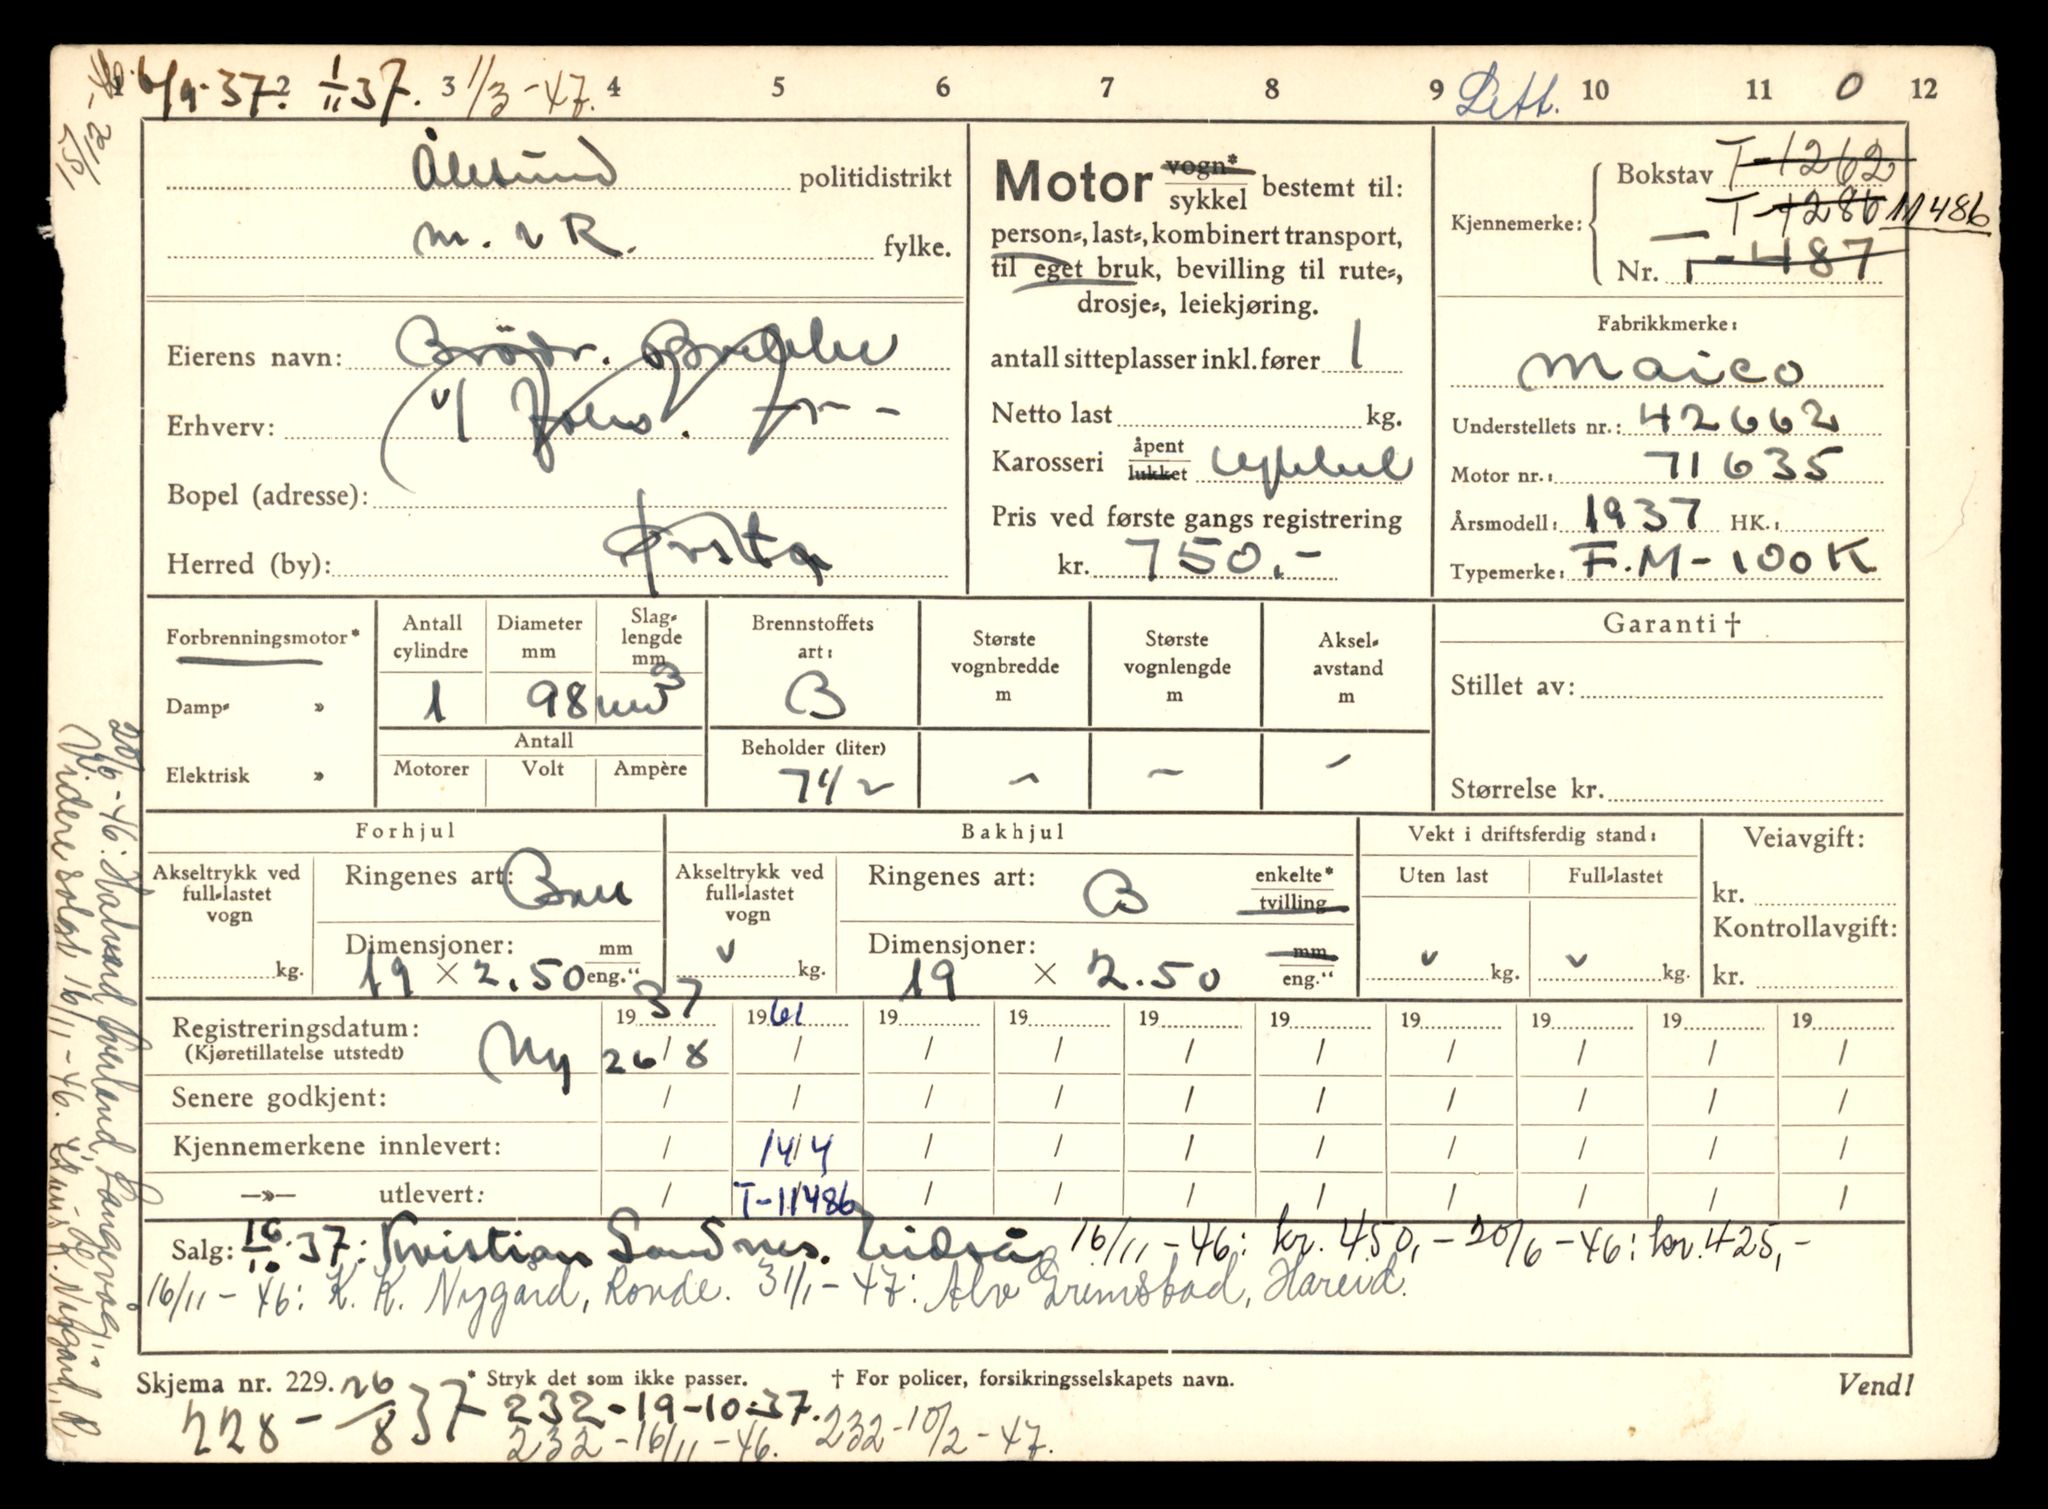 1 2 3 4 5 6 7 8 9 10 11 12
6/9-37. 1/11 37. 11/3-47. Lett. 0
Ålesund politidistrikt
M. & R. fylke.
Eierens navn: Brödr. Brekke
Erhverv: v/ Johs.
Bopel (adresse):
Herred (by): Ørsta
Motor vogn* / sykkel bestemt til:
person-, last-, kombinert transport,
til eget bruk, bevilling til rute-,
drosje-, leiekjøring.
antall sitteplasser inkl. fører 1
Netto last kg.
Karosseri åpent / lukket sykkel
Pris ved første gangs registrering
kr. 750.-
Kjennemerke: Bokstav T-1262
T-1286 11486
Nr. T-487
Fabrikkmerke:
Maico
Understellets nr.: 42662
Motor nr.: 71635
Årsmodell: 1937 HK.:
Typemerke: F.M-100K
Forbrenningsmotor*
Damp- »
Elektrisk »
Antall cylindre 1
Diameter mm 98 cm³
Slaglengde mm
Antall
Motorer Volt Ampère
Brennstoffets art: B
Beholder (liter) 7 1/2
Største vognbredde m -
Største vognlengde m -
Akselavstand m -
Garanti †
Stillet av:
Størrelse kr.
Forhjul
Akseltrykk ved full-lastet vogn kg.
Ringenes art: Ball
Dimensjoner: 19 × 2.50 mm / eng."
Bakhjul
Akseltrykk ved full-lastet vogn v kg.
Ringenes art: B enkelte* / tvilling
Dimensjoner: 19 × 2.50 mm / eng."
Vekt i driftsferdig stand:
Uten last v kg.
Full-lastet v kg.
Veiavgift:
kr.
Kontrollavgift:
kr.
Registreringsdatum: 19 37 19 61 19 19 19 19 19 19 19 19
(Kjøretillatelse utstedt) Ny 26/8 / / / / / / / / /
Senere godkjent: / / / / / / / / / /
Kjennemerkene innlevert: / 14/4 / / / / / / / /
—»— utlevert: / T-11486 / / / / / / / /
Salg: 16/10 37: Kristian Sandnes. Eidså 16/11-46: kr. 450,- 20/6-46: kr. 425,-
16/11-46: K. K. Nygård, Rovde. 31/1-47: Alv Grimstad, Hareid.
20/6-46: Halvard Överland, Langevåg.
Videresolgt 16/11-46.
Skjema nr. 229. * Stryk det som ikke passer. † For policer, forsikringsselskapets navn. Vend!
228-26/8 37 232-19-10-37.
232-16/11-46. 232-10/2-47.